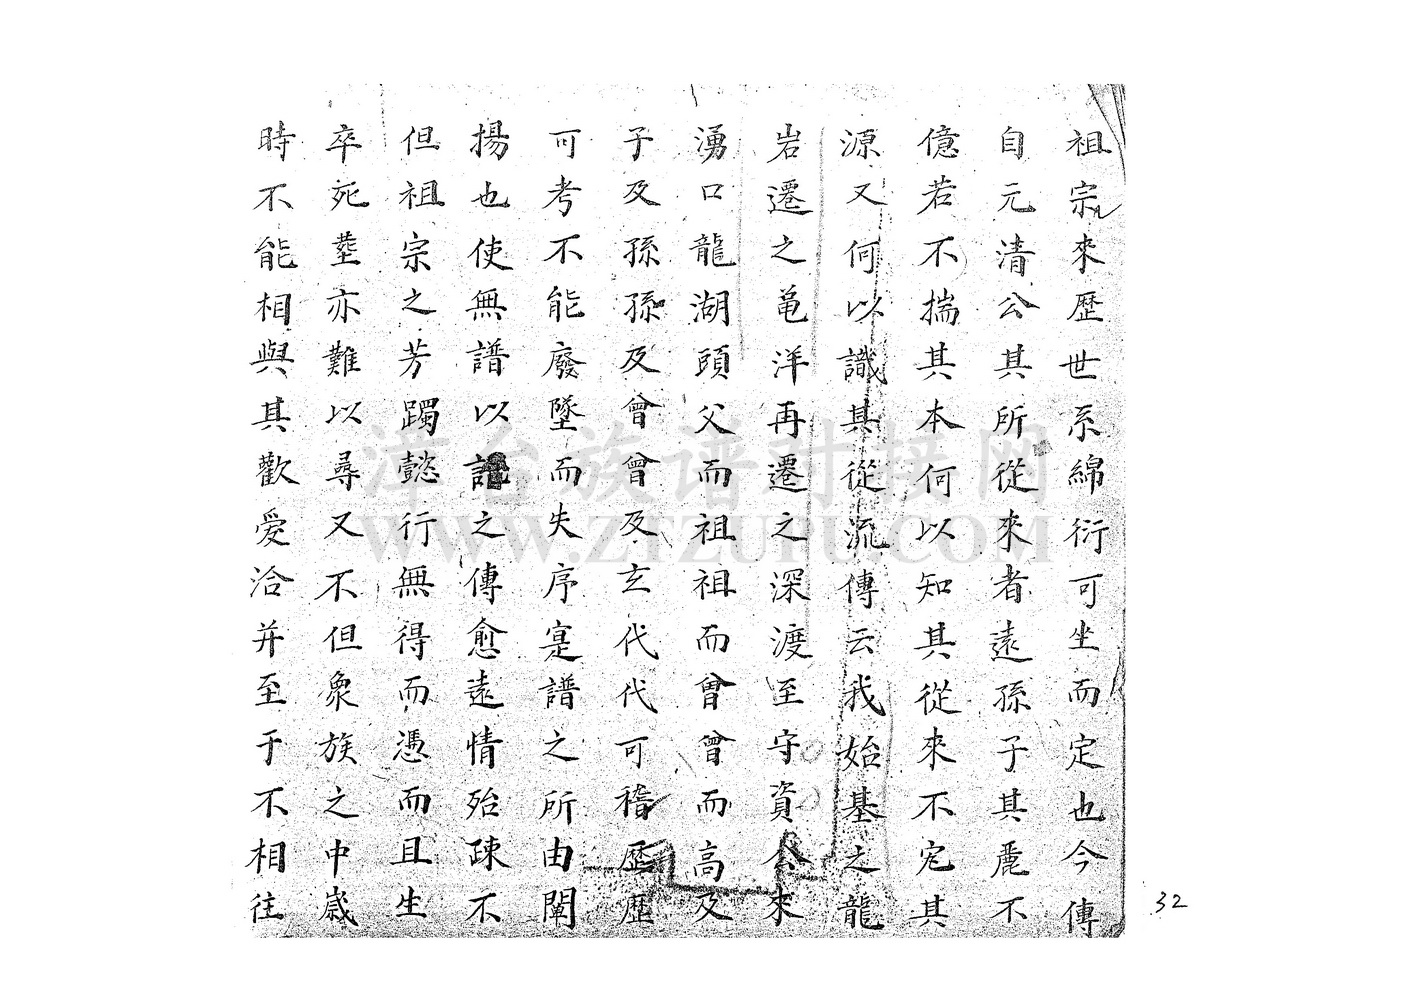 祖宗來歷世系綿衍可坐而定也今傳
自元清公其所從來者遠孫子其麗不
億若不揣其本何以知其從來不宄其
源又何以識其從流傳云我始基之龍
岩遷之黽洋再遷之深渡至守資公來
湧口龍湖頭父而祖祖而曾曾而高及
子及孫孫及曾曾及玄代代可稽歷歷
可考不能廢墜而失序寔譜之所由闡
揚也使無譜以記之傳愈遠情殆疎不
但祖宗之芳躅懿行無得而憑而且生
卒死塟亦難以尋又不但衆族之中歲
時不能相與其歡愛洽并至于不相往
32
漳台族谱对接网
WWW.ZTZUPU.COM